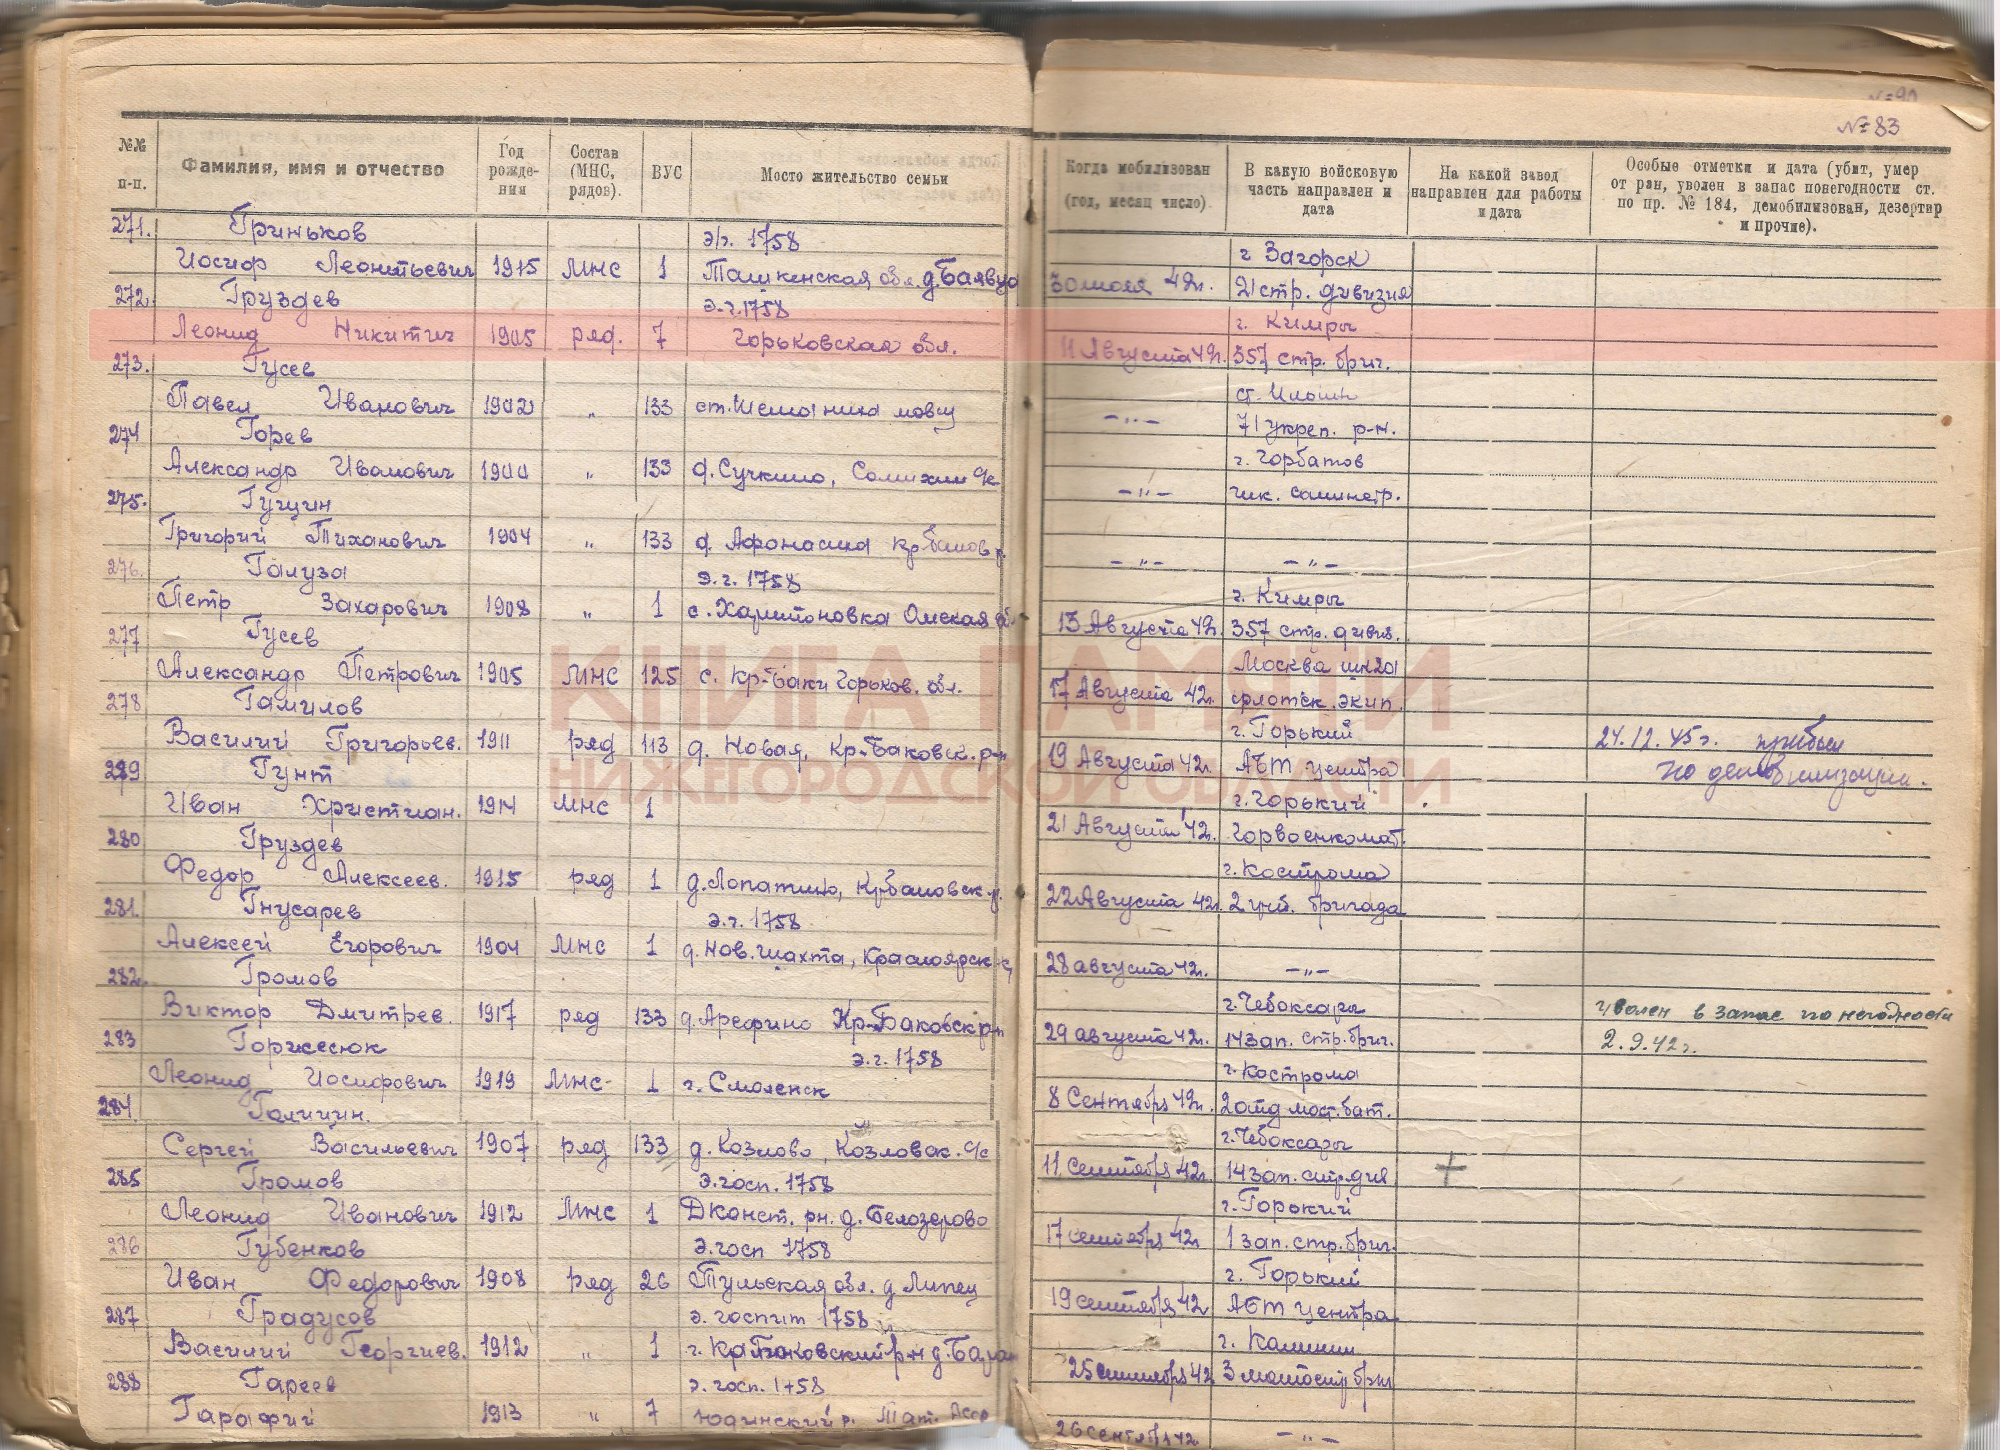 № 83
№№ п-п. Фамилия, имя и отчество Год рожде-ния Состав (МНС, рядов). ВУС Мосто жительство семьи Когда мобилизован (год, месяц число). В какую войсковую часть направлен и дата На какой завод направлен для работы и дата Особые отметки и дата (убит, умер от ран, уволен в запас понегодности ст. по пр. № 184, демобилизован, дезертир и прочие).
271. Гриньков э/г. 1758 г Загорск
Иосиф Леонтьевич 1915 МНС 1 обл. 42г. 21 стр. дивизия
272. Груздев э.г. 1758 г. Кимры
Леонид Никитич 1905 ряд. 7 Горьковская обл. 11 Августа 42г. 357 стр. бриг.
273. Гусев ст.
Павел Иванович 1902 " 133 ст. Шеманиха -"- 71 укреп. р-н.
274 Горев г. Горбатов
Александр Иванович 1900 " 133 д. Сучкино, с/с -"-
275. Гущин
Григорий Тиханович 1904 " 133 д. -"- -"-
276. Галуза э.г. 1758 г. Кимры
Петр Захарович 1908 " 1 с. Харитоновка Омская 13 Августа 42г. 357 стр. дивиз.
277 Гусев Москва
Александр Петрович 1905 МНС 125 с. Кр-Баки Горьков. обл. 17 Августа 42г. флотск. экип.
278 Гамилов г. Горький 24.12.45г. прибыл
Василий Григорьев. 1911 ряд 113 д. Новая, Кр-Баковск. р-н 19 Августа 42г. АБТ центра по демобилизации.
279 Гунт г. Горький
Иван Христиан. 1914 МНС 1 21 Августа 42г. Горвоенкомат.
280 Груздев г. Кострома
Федор Алексеев. 1915 ряд 1 д. Лопатино, 22 Августа 42г. 2 бригада
281. Гнусарев э.г. 1758
Алексей Егорович 1904 МНС 1 д. Нов. шахта, 28 августа 42г. -"-
282. Громов г. Чебоксары уволен в запас по негодности
Виктор Дмитрев. 1917 ряд 133 д. Арефино Кр-Баковск р-н 29 августа 42г. 14 зап. стр. бриг. 2.9.42г.
283 э.г. 1758 г. Кострома
Леонид Иосифович 1919 МНС- 1 г. Смоленск 8 Сентября 42г. 2 отд мот. бат.
284. Галичин. г. Чебоксары
Сергей Васильевич 1907 ряд 133 д. Козлово, Козловск. с/с 11 сентября 42г. 14 зап. стр. див +
285 Громов э. госп. 1758 г. Горький
Леонид Иванович 1912 МНС 1 Дконст. рн. д. Белозерово 17 сентября 42г 1 зап. стр. бриг.
286 Губенков э. госп 1758 г. Горький
Иван Федорович 1908 ряд 26 Тульская обл. д Липец 19 сентября 42 АБТ центра
287 Градусов э. госпит 1758 г. Калинин
Василий Георгиев. 1912 " 1 р-н д. 25 сентября 42 3
288 Гареев э. госп. 1758
Гарафий 1913 " 7 Юдинский р. Тат. Асср 26 сентября 42 -"-
КНИГА ПАМЯТИ
НИЖЕГОРОДСКОЙ ОБЛАСТИ